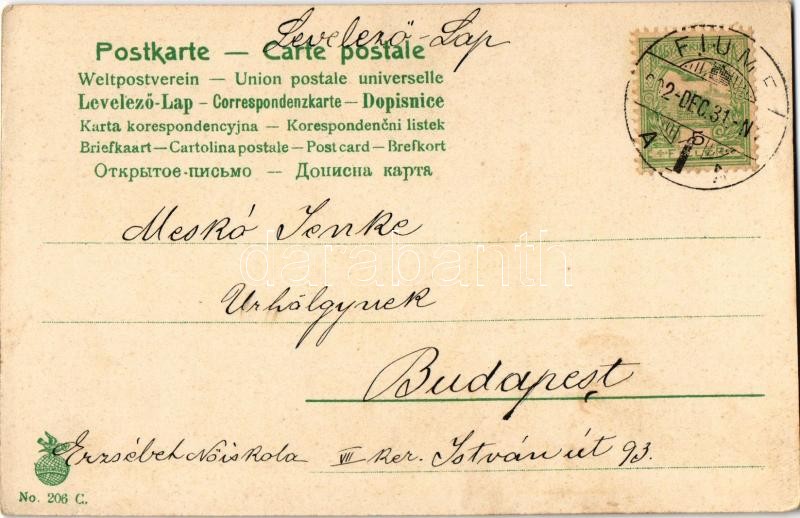 Levelező-Lap
Postkarte — Carte postale
Weltpostverein — Union postale universelle
Levelező-Lap – Correspondenzkarte – Dopisnice
Karta korespondencyjna — Korespondenčni listek
Briefkaart — Cartolina postale — Post card — Brefkort
Открытое-письмо — Дописна карта
FIUME
902-DEC.31-N
A
Meskó Jenke
Urhölgynek
Budapest
Erzsébet Nőiskola VII ker. István út 93.
No. 206 C.
darabanth